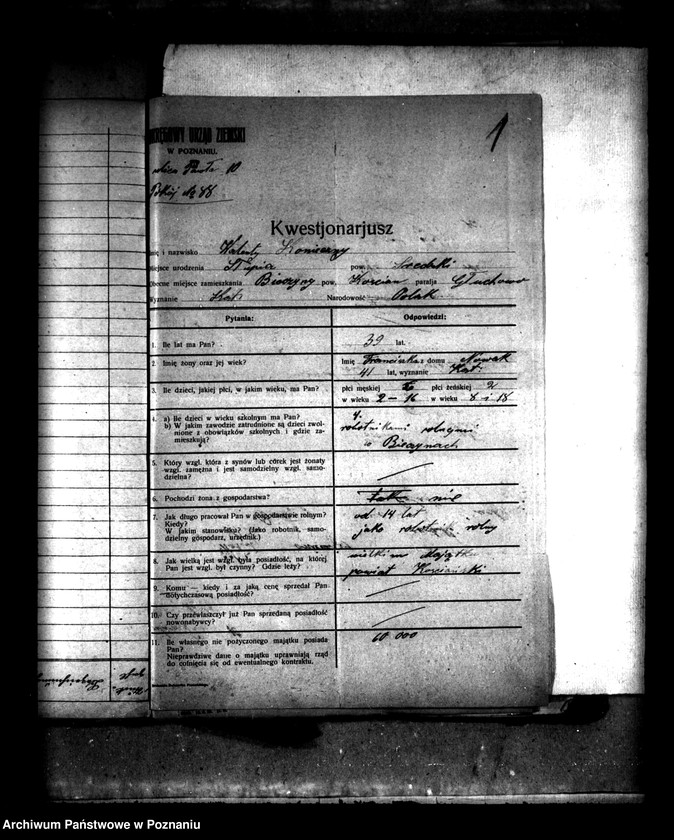 1
OKRĘGOWY URZĄD ZIEMSKI
W POZNANIU.
ulica 10
Pokój № 88
Kwestjonarjusz
Imię i nazwisko Walenty Konieczny
Miejsce urodzenia Słupia pow. Średzki
Obecne miejsce zamieszkania Bieczyny pow. Kościan parafja Głuchowo
Wyznanie Kat Narodowość Polak
Pytania: Odpowiedzi:
1. Ile lat ma Pan? 39 lat.
2. Imię żony oraz jej wiek? Imię Franciszka z domu Nowak
41 lat, wyznanie Kat.
3. Ile dzieci, jakiej płci, w jakim wieku, ma Pan? płci męskiej płci żeńskiej 2
w wieku 2 – 16 w wieku 8 i 18
4. a) Ile dzieci w wieku szkolnym ma Pan? 4.
b) W jakim zawodzie zatrudnione są dzieci zwol-
nione z obowiązków szkolnych i gdzie za-
mieszkują?
robotnikami rolnymi
w Bieczynach
5. Który wzgl. która z synów lub córek jest żonaty
wzgl. zamężna i jest samodzielny wzgl. samo-
dzielna?
6. Pochodzi żona z gospodarstwa? nie
7. Jak długo pracował Pan w gospodarstwie rolnym?
Kiedy?
W jakim stanowisku? (Jako robotnik, samo-
dzielny gospodarz, urzędnik.)
od 14 lat
jako robotnik rolny
8. Jak wielką jest wzgl. była posiadłość, na której
Pan jest wzgl. był czynny? Gdzie leży?
powiat Kościański
9. Komu — kiedy i za jaką cenę sprzedał Pan
dotychczasową posiadłość?
10. Czy przewłaszczył już Pan sprzedaną posiadłość
nowonabywcy?
11. Ile własnego nie pożyczonego majątku posiada
Pan?
Nieprawdziwe dane o majątku uprawniają rząd
do cofnięcia się od ewentualnego kontraktu.
10 000
Archiwum Państwowe w Poznaniu